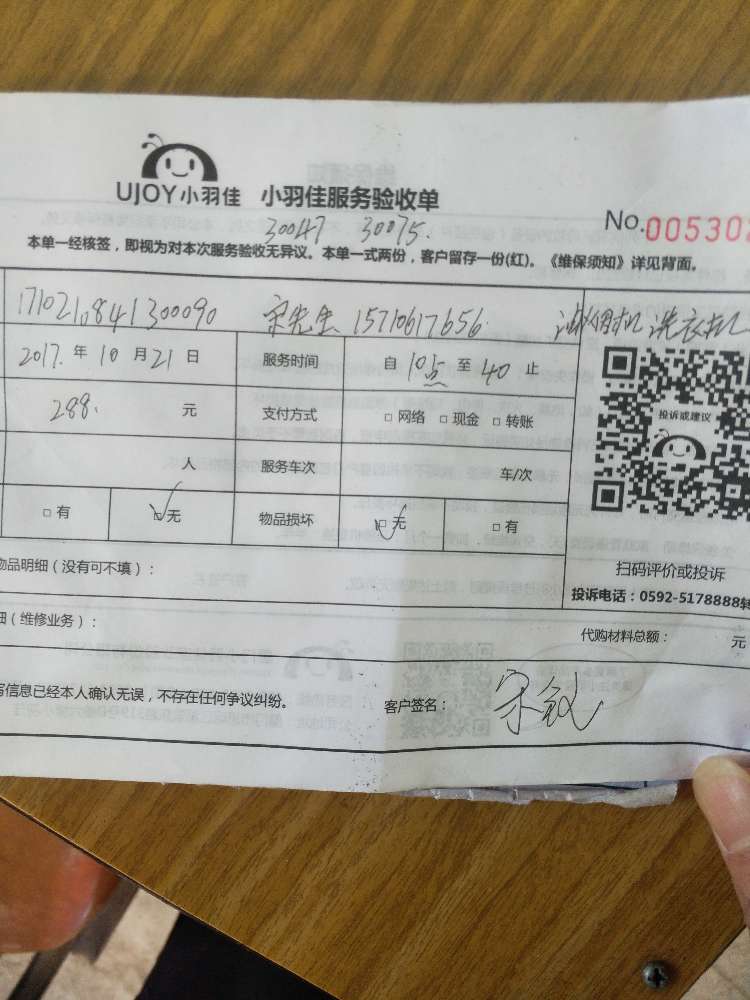 UJOY小羽佳 小羽佳服务验收单
30047 30075.
No.00530
本单一经核签，即视为对本次服务验收无异议。本单一式两份，客户留存一份(红)。《维保须知》详见背面。
1710210841300090 宋先生 15710617656 油烟机 洗衣机
2017. 年 10 月 21 日 服务时间 自 10点 至 40 止
288. 元 支付方式 □ 网络 □ 现金 □ 转账
投诉或建议
人 服务车次 车/次
□ 有 □ 无 物品损坏 □ 无 □ 有
物品明细（没有可不填）：
扫码评价或投诉
投诉电话：0592-5178888转
细（维修业务）： 代购材料总额： 元
写信息已经本人确认无误，不存在任何争议纠纷。 客户签名：